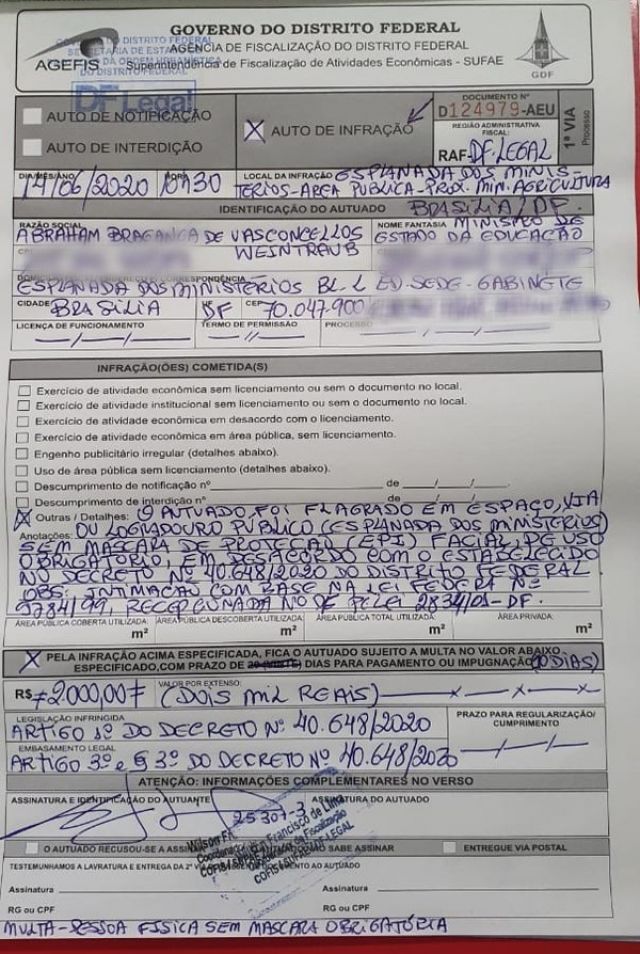 GOVERNO DO DISTRITO FEDERAL
AGÊNCIA DE FISCALIZAÇÃO DO DISTRITO FEDERAL
Superintendência de Fiscalização de Atividades Econômicas - SUFAE
AGEFIS
GDF
DF Legal
AUTO DE NOTIFICAÇÃO
AUTO DE INTERDIÇÃO
X AUTO DE INFRAÇÃO
DOCUMENTO Nº
D124979-AEU
REGIÃO ADMINISTRATIVA FISCAL:
RAF-DF-LEGAL
1ª VIA
Processo
DIA/MÊS/ANO HORA
14/06/2020 10h30
LOCAL DA INFRAÇÃO ESPLANADA DOS MINIS-
TÉRIOS-AREA PUBLICA-PROX. MIN. AGRICULTURA
BRASÍLIA/DF.
IDENTIFICAÇÃO DO AUTUADO
RAZÃO SOCIAL
ABRAHAM BRAGANÇA DE VASCONCELLOS
WEINTRAUB
NOME FANTASIA MINISTRO DE
ESTADO DA EDUCAÇÃO
ESPLANADA DOS MINISTÉRIOS BL-L ED-SEDE-GABINETE
CIDADE BRASÍLIA UF DF CEP 70.047-900
LICENÇA DE FUNCIONAMENTO TERMO DE PERMISSÃO PROCESSO
INFRAÇÃO(ÕES) COMETIDA(S)
Exercício de atividade econômica sem licenciamento ou sem o documento no local.
Exercício de atividade institucional sem licenciamento ou sem o documento no local.
Exercício de atividade econômica em desacordo com o licenciamento.
Exercício de atividade econômica em área pública, sem licenciamento.
Engenho publicitário irregular (detalhes abaixo).
Uso de área pública sem licenciamento (detalhes abaixo).
Descumprimento de notificação nº de / /
Descumprimento de interdição nº de / /
X Outras / Detalhes: O AUTUADO, FOI FLAGRADO EM ESPAÇO, VIA
Anotações: OU LOGRADOURO PÚBLICO (ESPLANADA DOS MINISTÉRIOS)
SEM MASCARA DE PROTEÇÃO (EPI) FACIAL, DE USO
OBRIGATÓRIO, EM DESACORDO COM O ESTABELECIDO
NO DECRETO Nº 40.648/2020 DO DISTRITO FEDERAL
OBS: INTIMAÇÃO COM BASE NA LEI FEDERAL Nº
9784/99, RECEPCIONADA NO DF PELEI 2834/01-DF.
ÁREA PÚBLICA COBERTA UTILIZADA: m² ÁREA PÚBLICA DESCOBERTA UTILIZADA: m² ÁREA PÚBLICA TOTAL UTILIZADA: m² ÁREA PRIVADA: m²
X PELA INFRAÇÃO ACIMA ESPECIFICADA, FICA O AUTUADO SUJEITO A MULTA NO VALOR ABAIXO
ESPECIFICADO, COM PRAZO DE 20 (VINTE) DIAS PARA PAGAMENTO OU IMPUGNAÇÃO (10 DIAS)
R$ 2000,00 VALOR POR EXTENSO: (DOIS MIL REAIS)
LEGISLAÇÃO INFRINGIDA
ARTIGO 1º DO DECRETO Nº 40.648/2020
PRAZO PARA REGULARIZAÇÃO/
CUMPRIMENTO
EMBASAMENTO LEGAL
ARTIGO 3º e § 3º DO DECRETO Nº 40.648/2020
ATENÇÃO: INFORMAÇÕES COMPLEMENTARES NO VERSO
ASSINATURA E IDENTIFICAÇÃO DO AUTUANTE ASSINATURA DO AUTUADO
25307-3
O AUTUADO RECUSOU-SE A SABE ASSINAR ENTREGUE VIA POSTAL
TESTEMUNHAMOS A LAVRATURA E ENTREGA DA 2ª AO AUTUADO
Assinatura Assinatura
RG ou CPF RG ou CPF
MULTA-PESSOA FISICA SEM MASCARA OBRIGATÓRIA